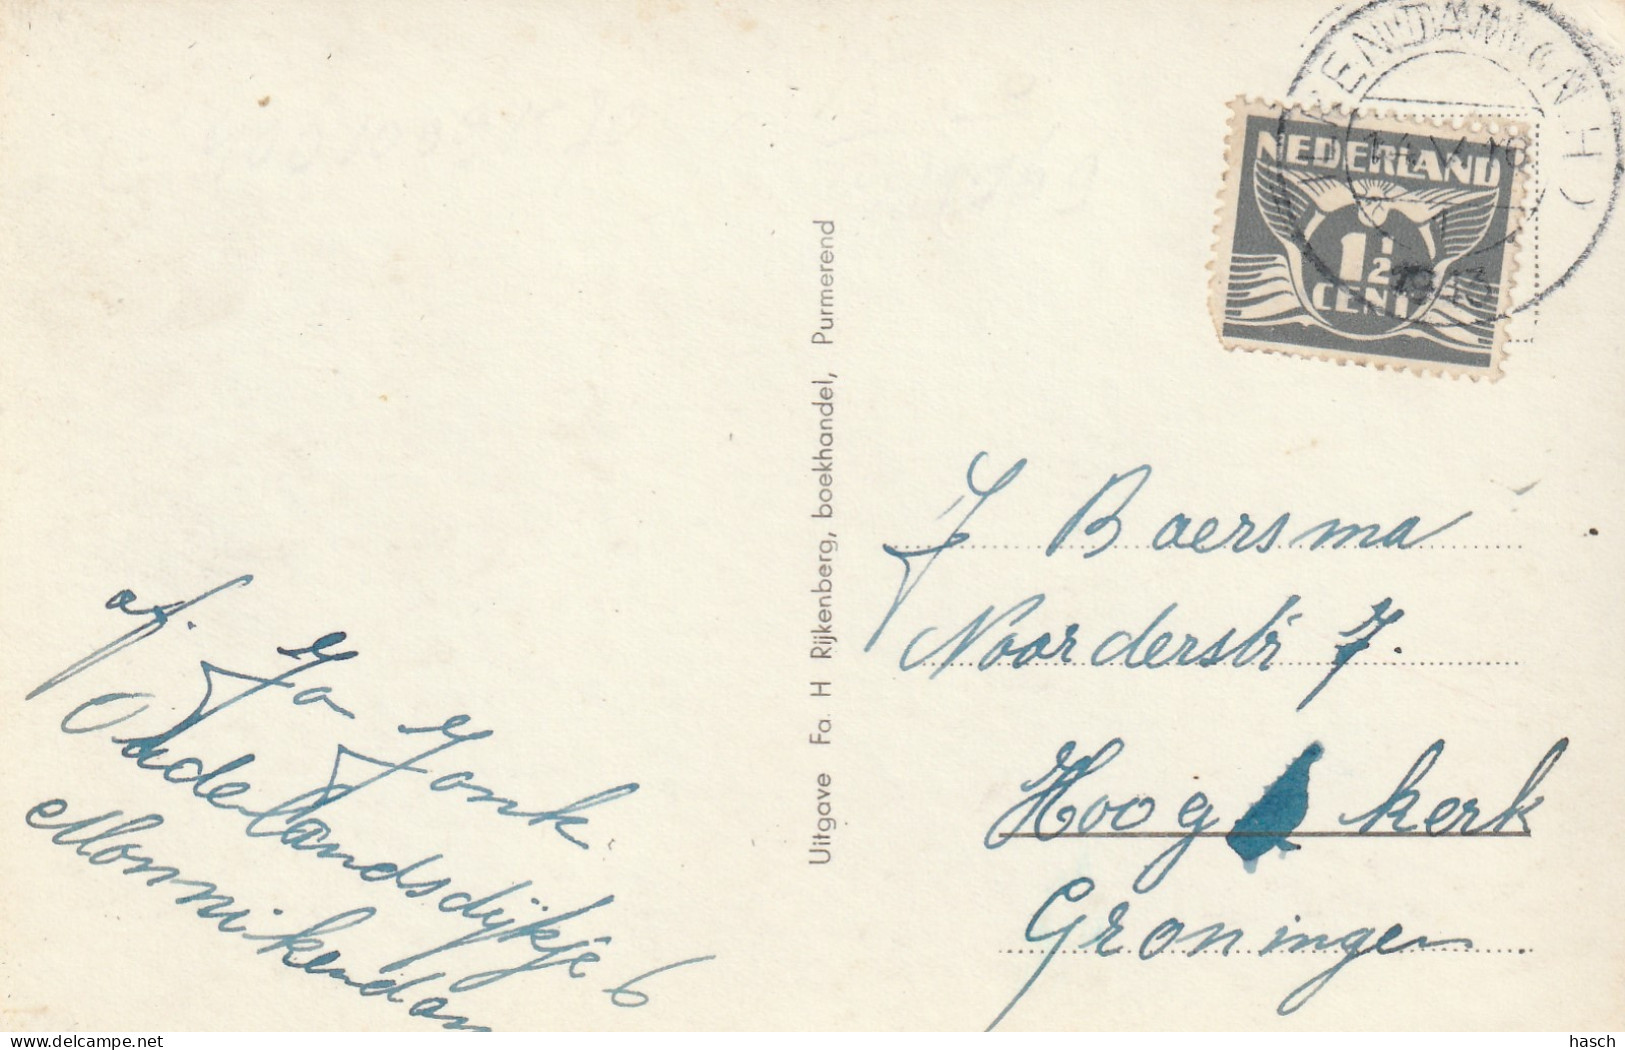 NEDERLAND
1½
CENT
Uitgave Fa. H Rijkenberg, boekhandel, Purmerend
J Baersma
Noorderstr 7.
Hoog kerk
Groningen
af. Jo Jonk
Oudelandsdijkje 6
Monnikendam
www.delcampe.net
hasch